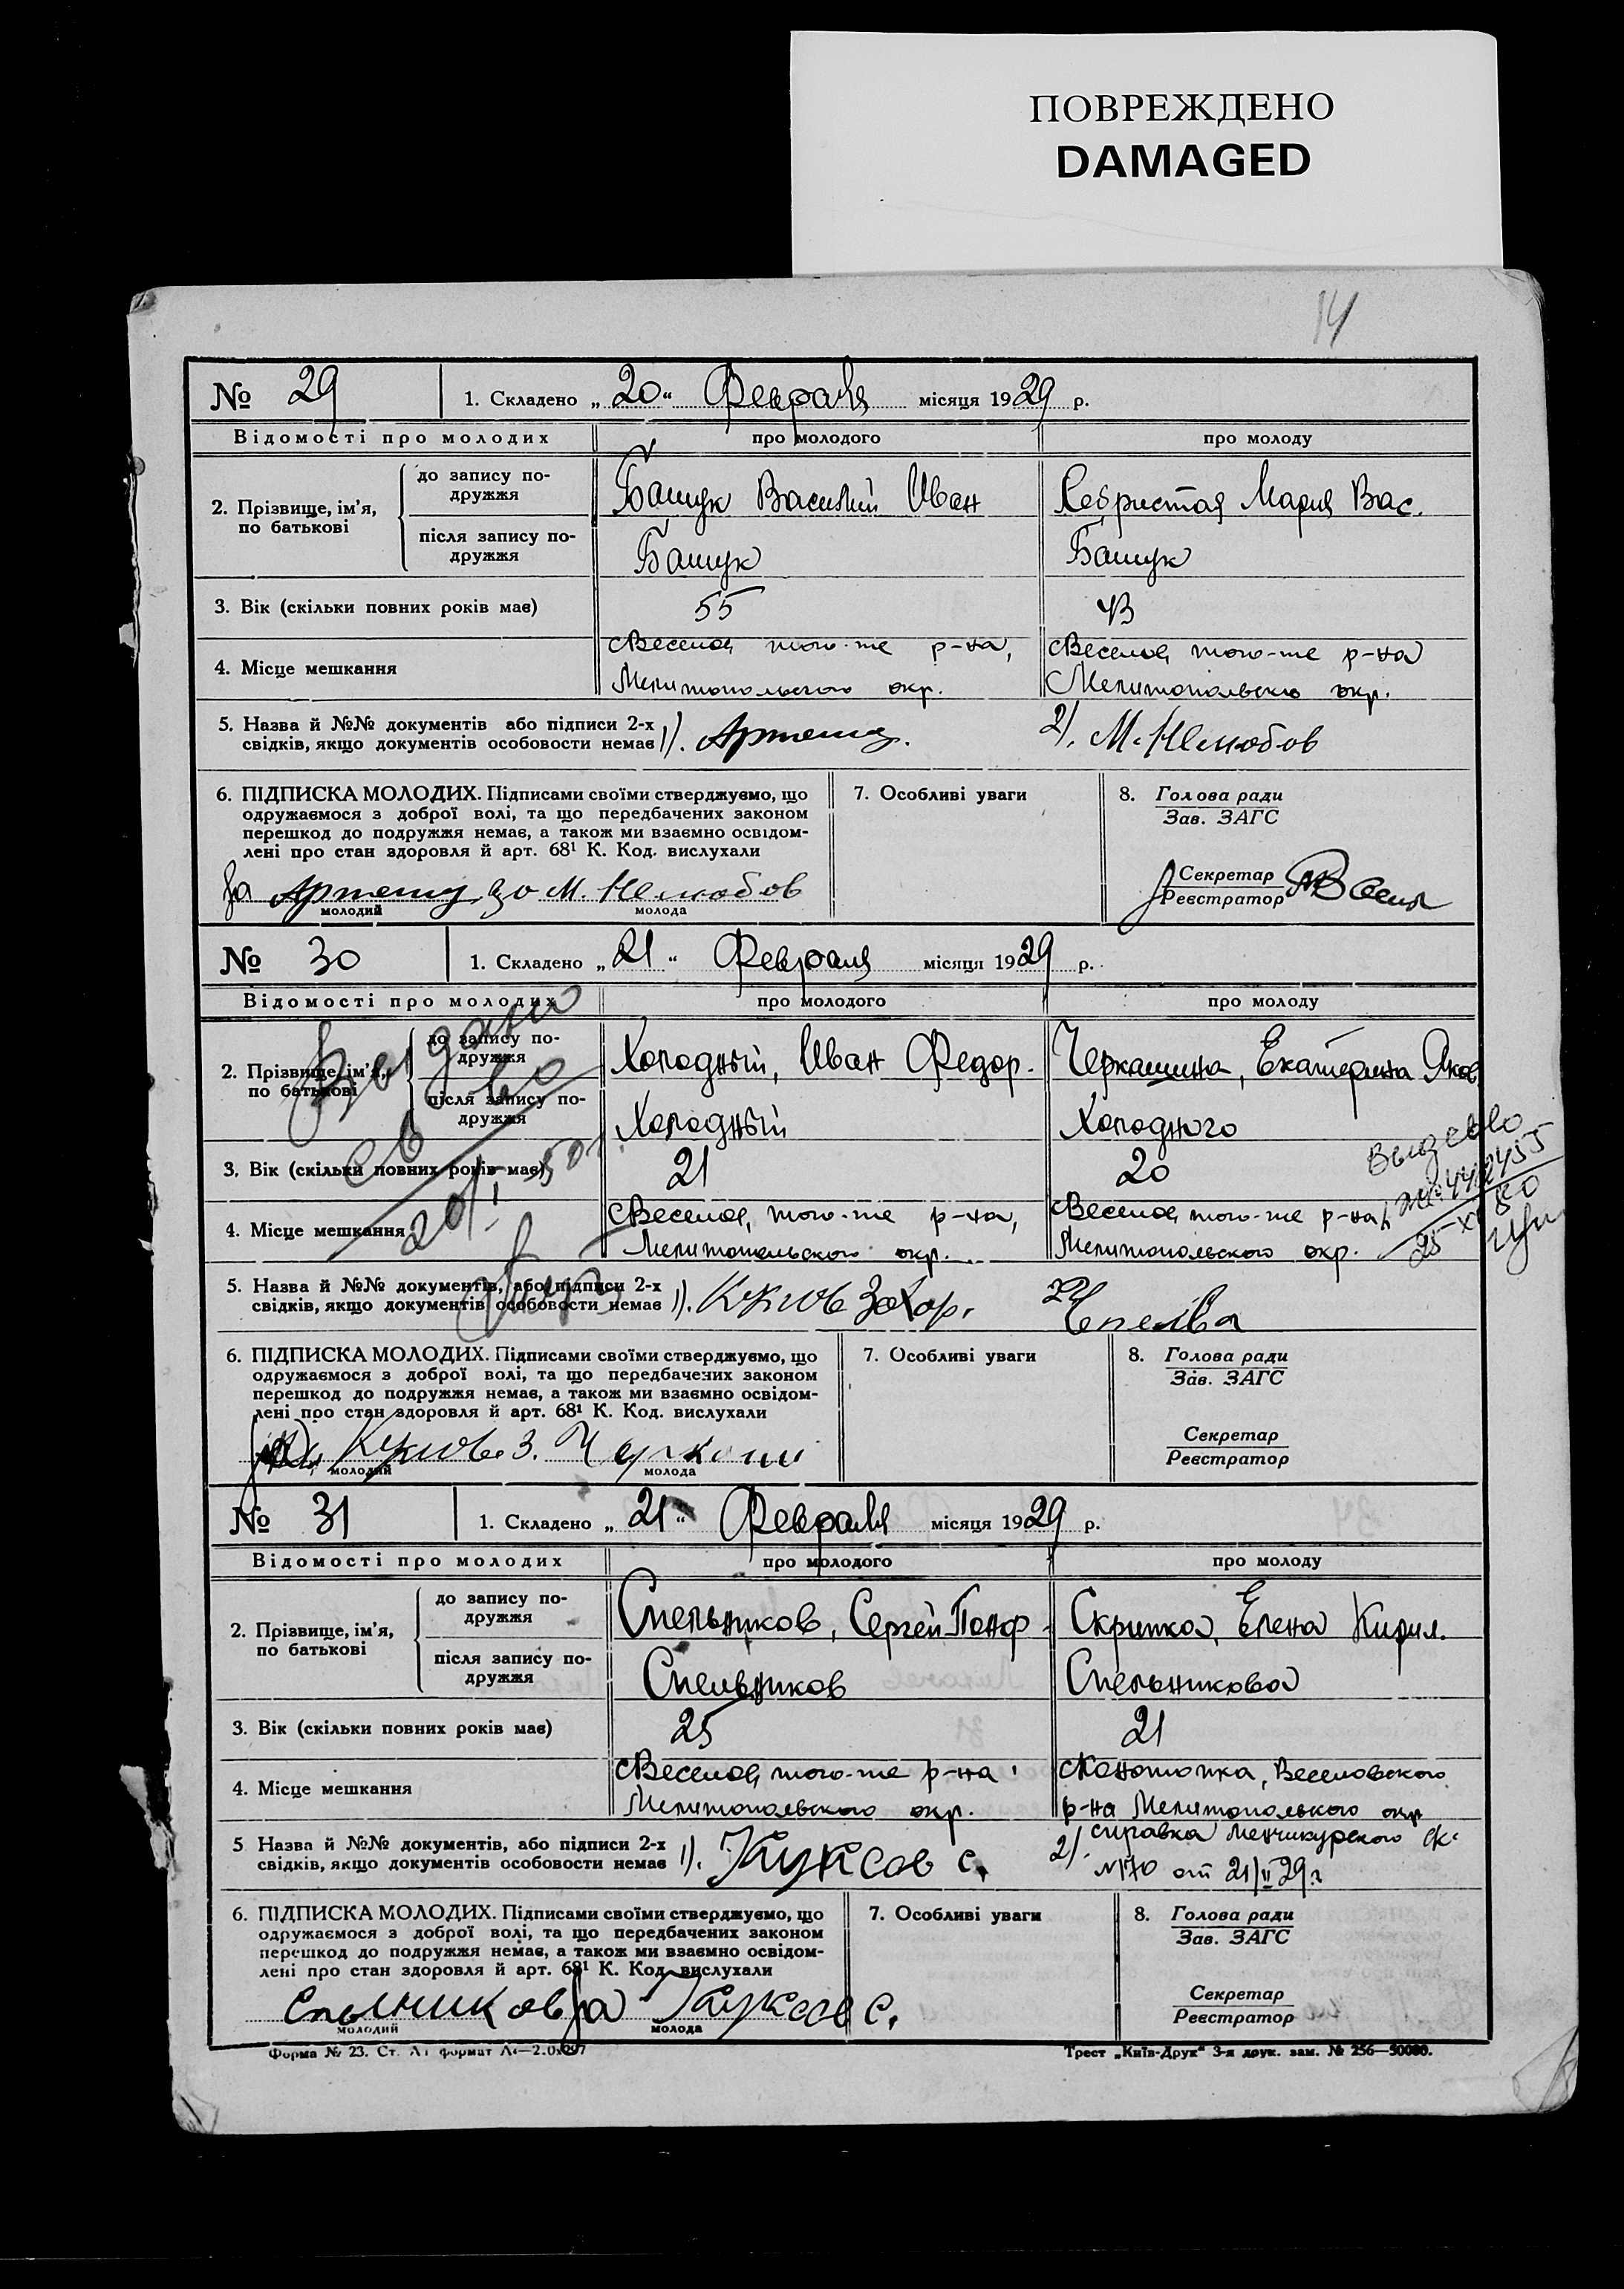 ПОВРЕЖДЕНО
DAMAGED
14
№ 29 1. Складено „ 20 “ Февраля місяця 1929 р.
Відомості про молодих про молодого про молоду
2. Прізвище, ім’я, по батькові
до запису по-
дружжя
Башук Василий Иван
Ребристая Мария Вас.
після запису по-
дружжя
Башук
Башук
3. Вік (скільки повних років має) 55 43
4. Місце мешкання
с Веселое, того-же р-на,
Мелитопольского окр.
с Веселое, того-же р-на
Мелитопольско окр.
5. Назва й №№ документів або підписи 2-х
свідків, якщо документів особовости немає
1). 2). М. Нелюбов
6. ПІДПИСКА МОЛОДИХ. Підписами своїми стверджуємо, що
одружаємося з доброї волі, та що передбачених законом
перешкод до подружжя немає, а також ми взаємно освідом-
лені про стан здоровля й арт. 68¹ К. Код. вислухали
за М. Нелюбов
молодий молода
7. Особливі уваги
8. Голова ради
Зав. ЗАГС
Секретар
Реєстратор
№ 30 1. Складено „ 21 “ Февраля місяця 1929 р.
Відомості про молодих про молодого про молоду
2. Прізвище, ім’я,
по батькові
до запису по-
дружжя
Холодный, Иван Федор.
Черкашина, Екатерина Яков
після запису по-
дружжя
Холодный
Холодного
Выдано
св во
3. Вік (скільки повних років має) 21 20
4. Місце мешкання
с Веселое, того-же р-на,
Мелитопольского окр.
с Веселое, того-же р-на,
Мелитопольского окр.
5. Назва й №№ документів, або підписи 2-х
свідків, якщо документів особовости немає
1). 2)
6. ПІДПИСКА МОЛОДИХ. Підписами своїми стверджуємо, що
одружаємося з доброї волі, та що передбачених законом
перешкод до подружжя немає, а також ми взаємно освідом-
лені про стан здоровля й арт. 68¹ К. Код. вислухали
молодий молода
7. Особливі уваги
8. Голова ради
Зав. ЗАГС
Секретар
Реєстратор
№ 31 1. Складено „ 21 “ Февраля місяця 1929 р.
Відомості про молодих про молодого про молоду
2. Прізвище, ім’я,
по батькові
до запису по-
дружжя
Смельников, Сергей Панф.
Скрипка, Елена Кирил.
після запису по-
дружжя
Смельников
Смельникова
3. Вік (скільки повних років має) 25 21
4. Місце мешкання
с Веселое, того-же р-на,
Мелитопольского окр.
с Конотопка, Веселовского
р-на Мелитопольского окр
5 Назва й №№ документів, або підписи 2-х
свідків, якщо документів особовости немає
1). Куксов С.
2). справка Менчикурского
№170 от 21/II 29 г
6. ПІДПИСКА МОЛОДИХ. Підписами своїми стверджуємо, що
одружаємося з доброї волі, та що передбачених законом
перешкод до подружжя немає, а також ми взаємно освідом-
лені про стан здоровля й арт. 68¹ К. Код. вислухали
за Куксов С.
молодий молода
7. Особливі уваги
8. Голова ради
Зав. ЗАГС
Секретар
Реєстратор
Форма № 23. Ст.
Трест „Київ-Друк“ 3-я друк. зам. № 256—50000.